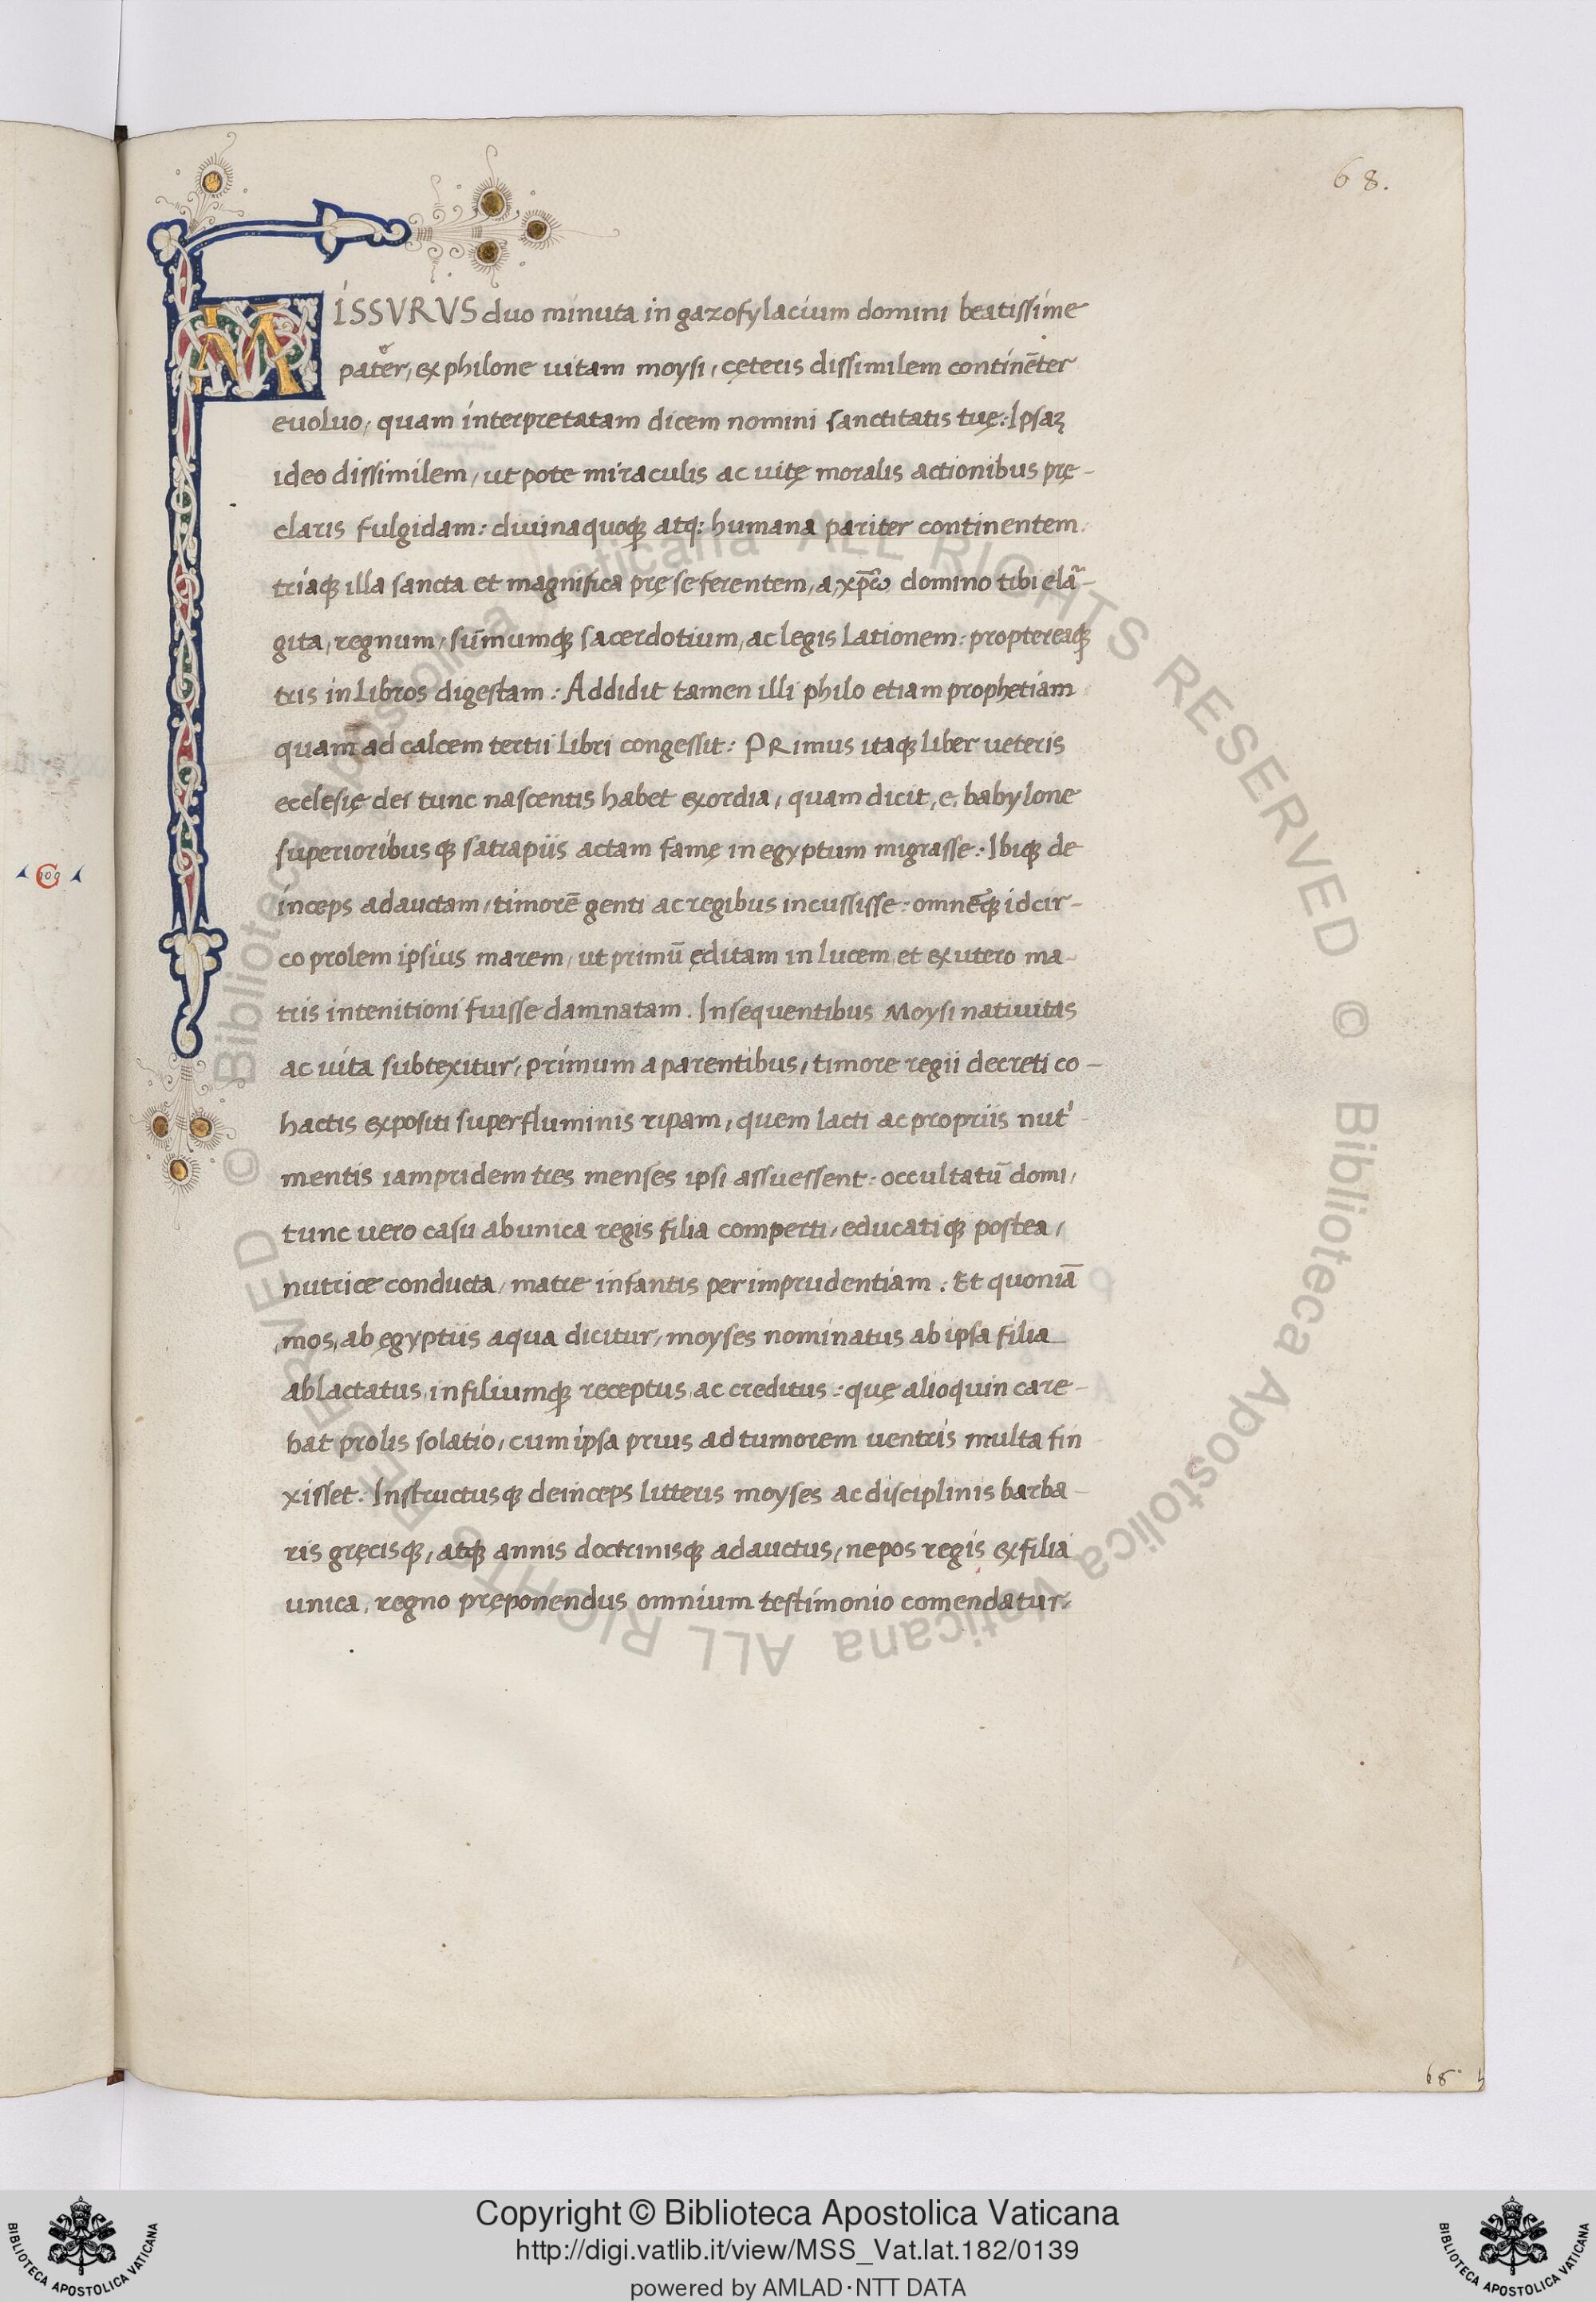 68.
MISSVRVS duo minuta in gazofylacium domini beatissime
pater, ex philone uitam moysi, cęteris dissimilem continēter
euoluo, quam interpretatam dicem nomini sanctitatis tuę: Ipsaꝫ
ideo dissimilem, ut pote miraculis ac uitę moralis actionibus prę-
claris fulgidam: diuina quoqꝫ atq: humana pariter continentem.
triaqꝫ illa sancta et magnifica prę se ferentem, a, xp̄o domino tibi elā-
gita, regnum, sūmumqꝫ sacerdotium, ac legis lationem: proptereaqꝫ
tris in libros digestam: Addidit tamen illi philo etiam prophetiam
quam ad calcem tertii libri congessit: PRimus itaqꝫ liber ueteris
ecclesię dei tunc nascentis habet exordia, quam dicit, e, babylone
superioribusqꝫ satrapiis actam famę in egyptum migrasse: Ibiqꝫ de
inceps adauctam, timorē genti ac regibus incussisse: omnēqꝫ idcir-
co prolem ipsius marem, ut primū ęditam in lucem, et ex utero ma-
tris intenitioni fuisse damnatam. Insequentibus Moysi natiuitas
ac uita subtexitur, primum a parentibus, timore regii decreti co-
hactis expositi super fluminis ripam, quem lacti ac propriis nut'-
mentis iampridem tres menses ipsi assuessent: occultatū domi,
tunc uero casu ab unica regis filia comperti, educatiqꝫ postea,
nutrice conducta, matre infantis per imprudentiam: Et quoniā
mos, ab ęgyptiis aqua dicitur, moyses nominatus ab ipsa filia
ablactatus, in filiumqꝫ receptus ac creditus: quę alioquin care-
bat prolis solatio, cum ipsa prius ad tumorem uentris multa fin
xisset: Instructusqꝫ deinceps litteris moyses ac disciplinis barba-
ris gręcisqꝫ, atqꝫ annis doctrinisqꝫ adauctus, nepos regis ex filia
unica, regno pręponendus omnium testimonio comendatur:
109
68
© Biblioteca Apostolica Vaticana ALL RIGHTS RESERVED
© Biblioteca Apostolica Vaticana ALL RIGHTS RESERVED
Copyright © Biblioteca Apostolica Vaticana
http://digi.vatlib.it/view/MSS_Vat.lat.182/0139
powered by AMLAD·NTT DATA
BIBLIOTECA APOSTOLICA VATICANA
BIBLIOTECA APOSTOLICA VATICANA